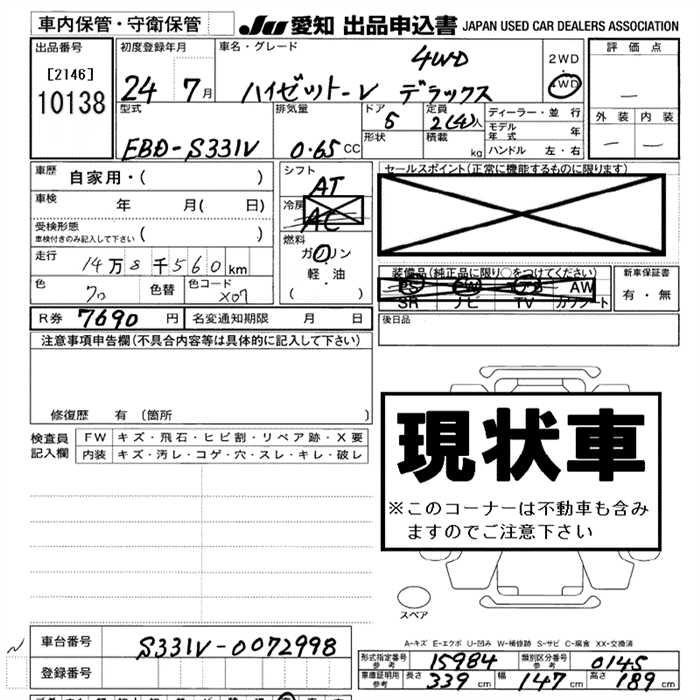 車内保管・守衛保管
JU 愛知 出品申込書 JAPAN USED CAR DEALERS ASSOCIATION
出品番号
[2146]
10138
初度登録年月
24 7月
車名・グレード
4WD
ハイゼットーV デラックス
2WD
・
4WD
評価点
—
外装 内装
— —
型式
EBD-S331V
排気量
0.65 CC
ドア
5
形状
定員
2(4)人
積載
kg
ディーラー・並行
モデル年式 年
ハンドル 左・右
車歴 自家用・( )
車検 年 月( 日)
受検形態
車検付きのみ記入して下さい ( )
走行 14万8千560km
色 クロ 色替 色コード X07
シフト
AT
冷房
AC
燃料
ガソリン
軽・油
( )
セールスポイント(正常に機能するものに限ります)
装備品(純正品に限り○をつけてください)
PS PW エアB AW
SR ナビ TV カワシート
新車保証書
有・無
R券 7690円 名変通知期限 月 日
後日品
注意事項申告欄(不具合内容等は具体的に記入して下さい)
修復歴 有 (箇所 )
検査員記入欄
FW キズ・飛石・ヒビ割・リペア跡・X要
内装 キズ・汚レ・コゲ・穴・スレ・キレ・破レ
現状車
※このコーナーは不動車も含み
ますのでご注意下さい
スペア
A-キズ E-エクボ U-凹み W-補修跡 S-サビ C-腐食 XX-交換済
車台番号 S331V-0072998
登録番号
形式指定番号
参考
15984
類別区分番号
参考
0145
車庫証明用
参考
長さ 339cm 幅 147cm 高さ 189cm